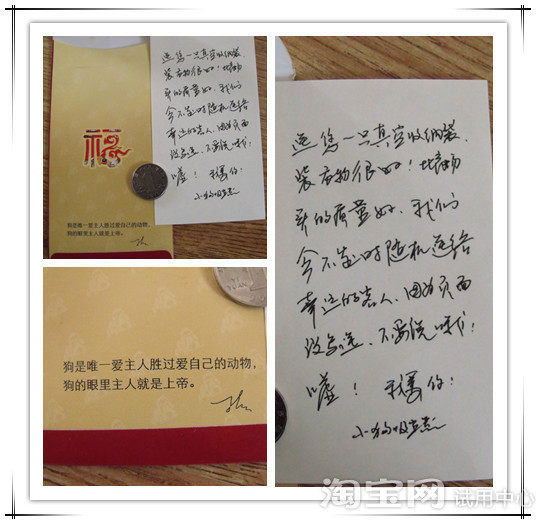 福
送您一只真空收纳袋,
装衣物很好!比商场
买的质量好,我们
会不定时随机送给
幸运的客人,因为页面
没写送,不要说哦!
嘘! 我爱你!
小狗吸尘器
狗是唯一爱主人胜过爱自己的动物,
狗的眼里主人就是上帝。
YI YUAN
狗是唯一爱主人胜过爱自己的动物,
狗的眼里主人就是上帝。
送您一只真空收纳袋,
装衣物很好!比商场
买的质量好,我们
会不定时随机送给
幸运的客人,因为页面
没写送,不要说哦!
嘘! 我爱你!
小狗吸尘器
淘宝网 试用中心